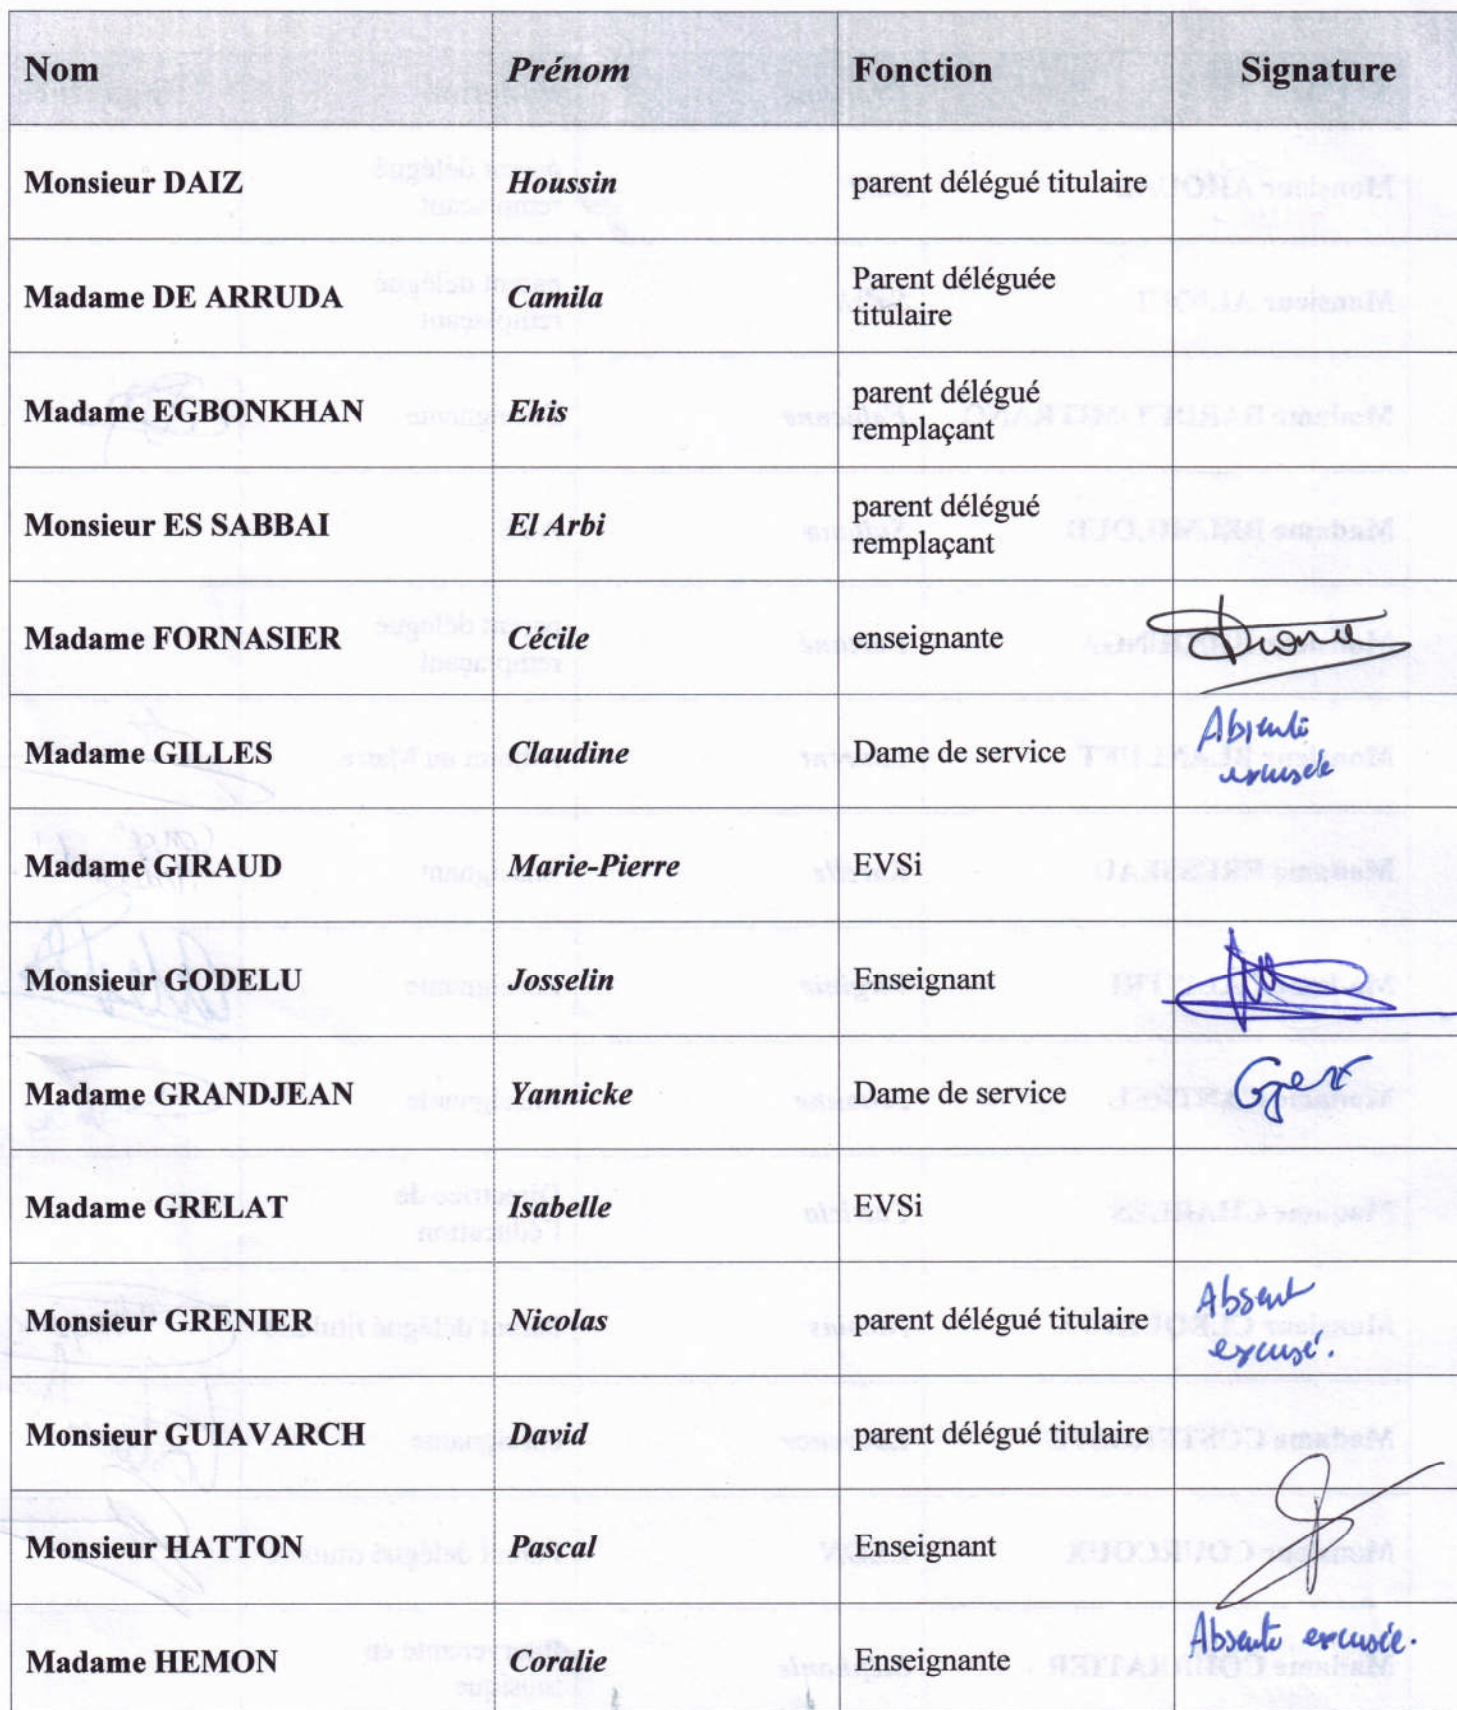 Nom Prénom Fonction Signature
Monsieur DAIZ Houssin parent délégué titulaire
Madame DE ARRUDA Camila Parent déléguée
titulaire
Madame EGBONKHAN Ehis parent délégué
remplaçant
Monsieur ES SABBAI El Arbi parent délégué
remplaçant
Madame FORNASIER Cécile enseignante
Madame GILLES Claudine Dame de service Absente
excusée
Madame GIRAUD Marie-Pierre EVSi
Monsieur GODELU Josselin Enseignant
Madame GRANDJEAN Yannicke Dame de service
Madame GRELAT Isabelle EVSi
Monsieur GRENIER Nicolas parent délégué titulaire Absent
excusé.
Monsieur GUIAVARCH David parent délégué titulaire
Monsieur HATTON Pascal Enseignant
Madame HEMON Coralie Enseignante Absente excusée.